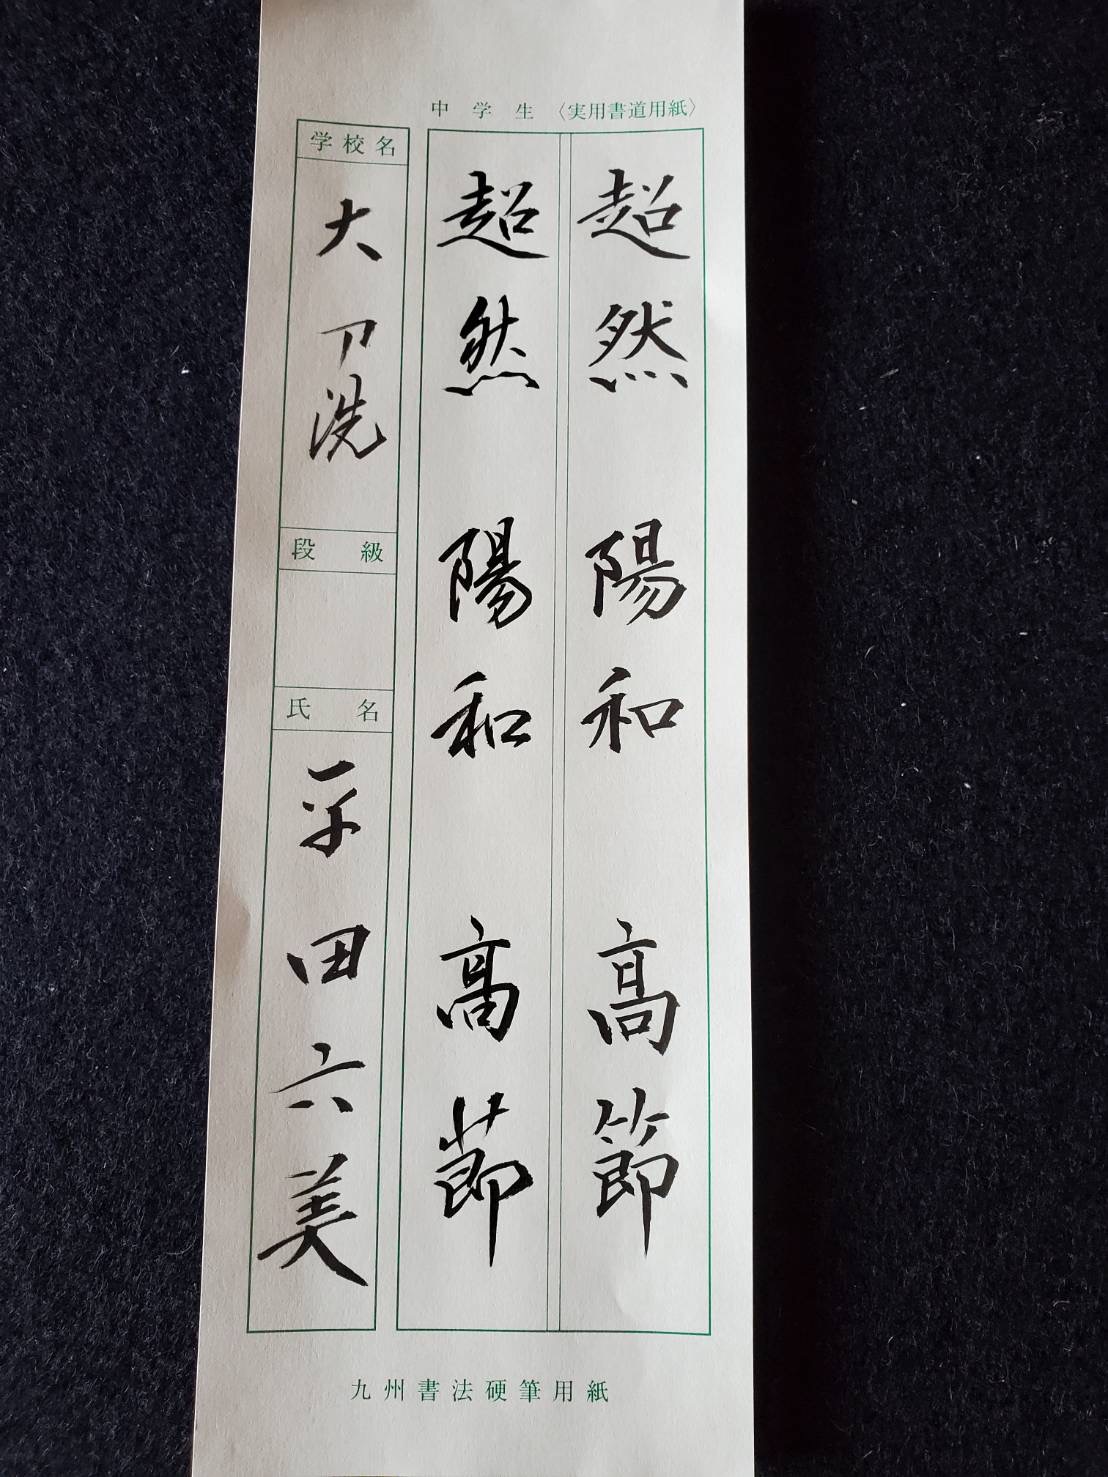 中学生〈実用書道用紙〉
超然陽和高節
超然陽和高節
学校名
大刀洗
段級
氏名
平田六美
九州書法硬筆用紙